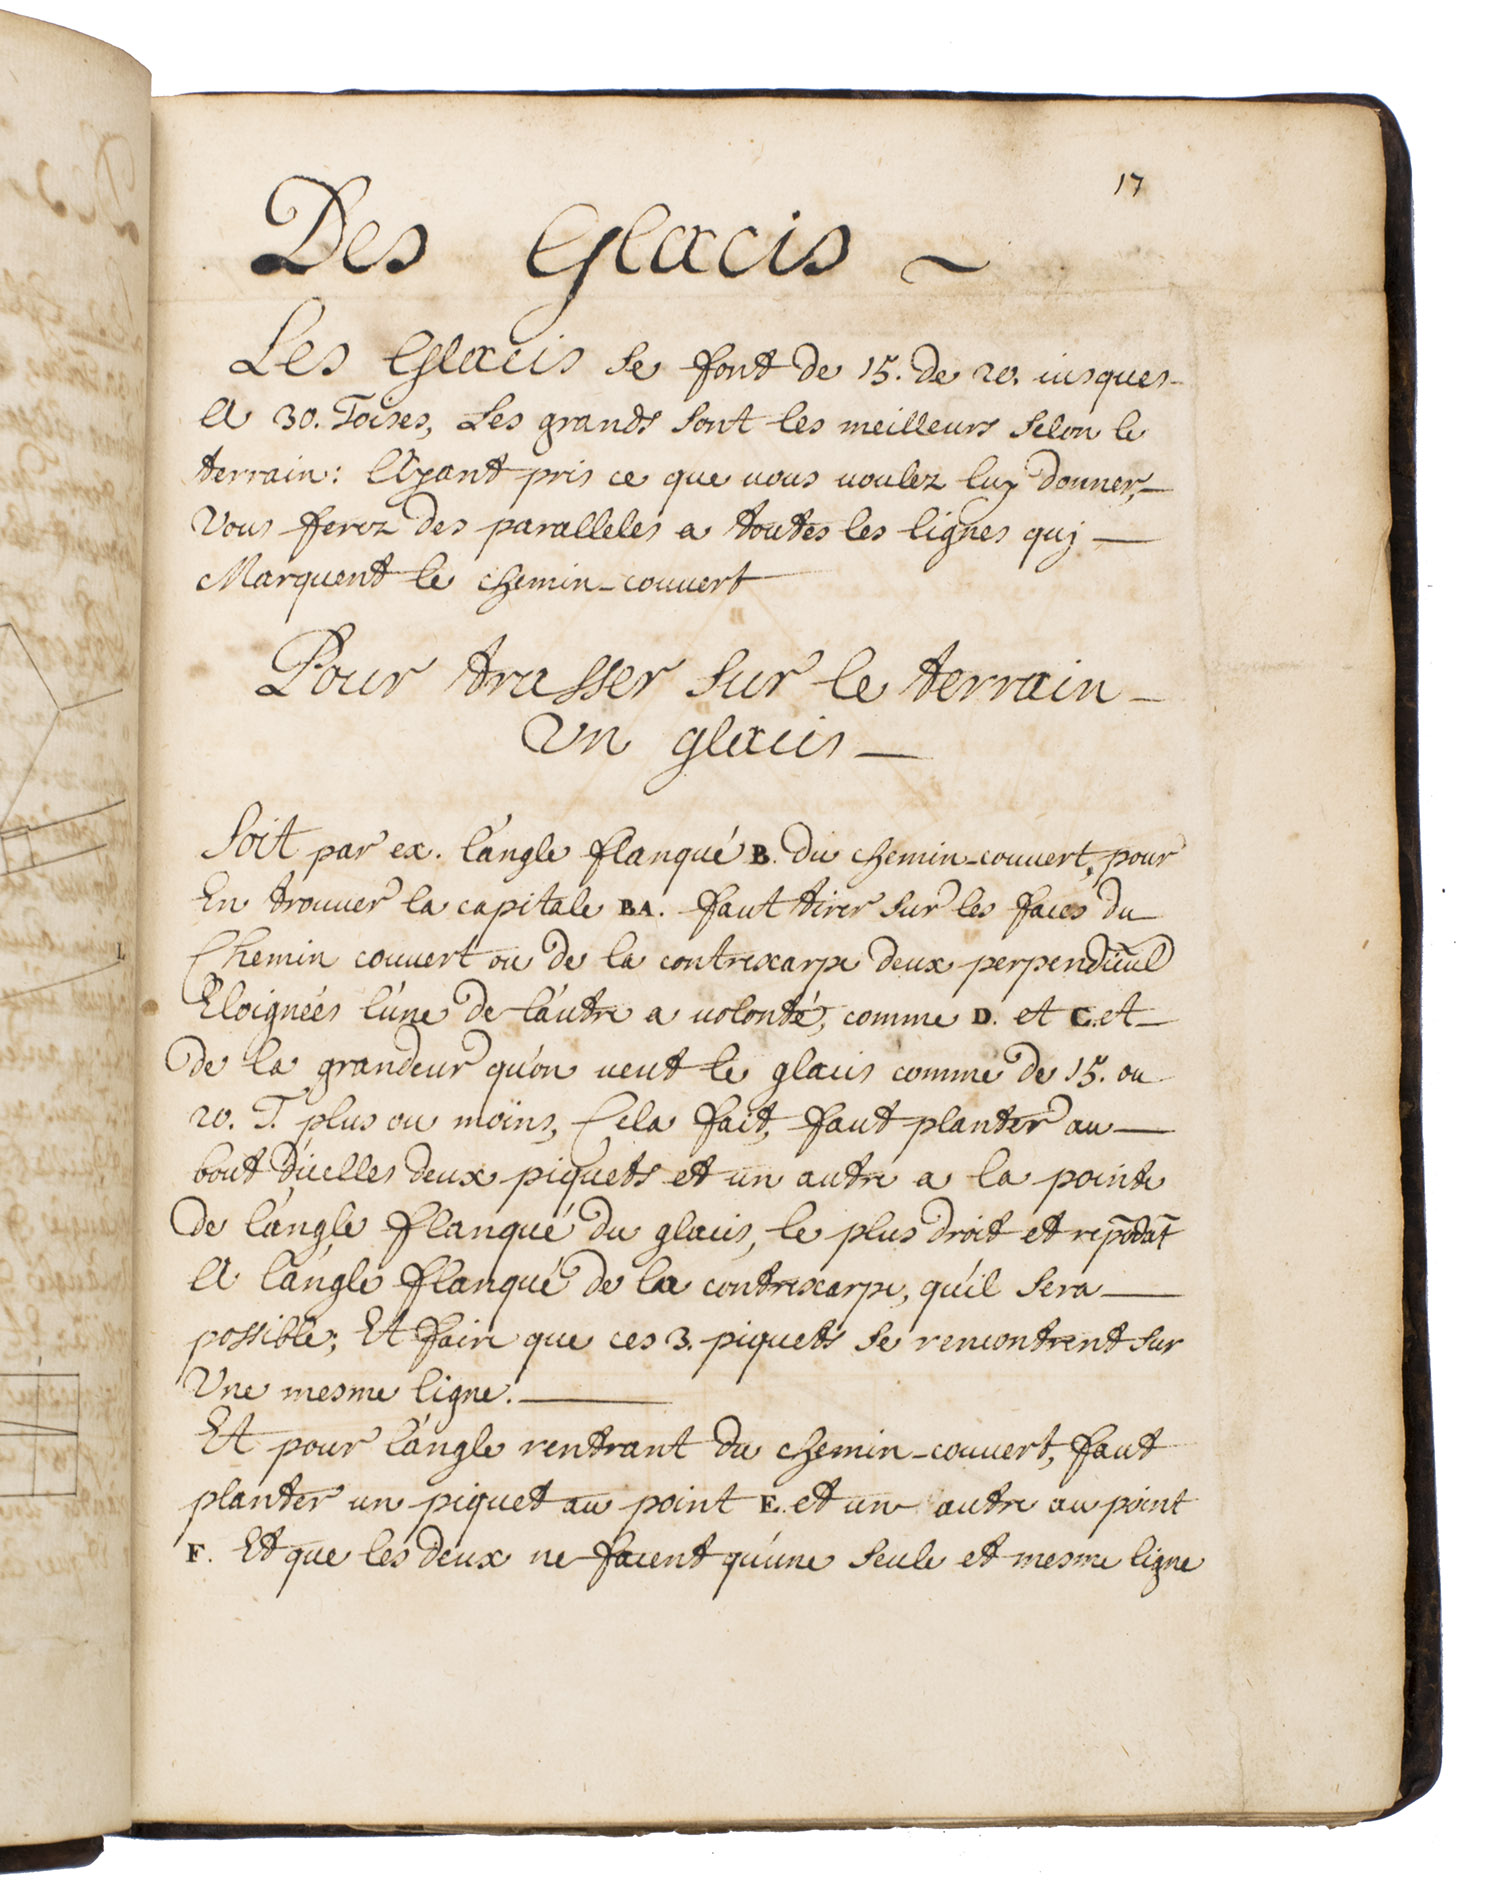 17
Des Glacis ~
Les Glacis se font de 15. de 20. iusques
A 30. Toises, Les grands sont les meilleurs selon le
terrain: Ayant pris ce que vous voulez luy donner,
Vous ferez des paralleles a toutes les lignes quj
Marquent le chemin-couuert
Pour trasser sur le terrain
Un glacis
Soit par ex. l'angle flanqué B. du chemin-couuert, pour
En trouuer la capitale BA. faut tirer sur les faces du
Chemin couuert ou de la contrescarpe deux perpendicul
Eloignées l'une de l'autre a uolonté, comme D. et C. et
de la grandeur qu'on ueut le glacis comme de 15. ou
20. T. plus ou moins, Cela fait, faut planter au
bout d'icelles deux piquets et un autre a la pointe
de l'angle flanqué du glacis, le plus droit et repōdāt
A l'angle flanqué de la contrescarpe, qu'il sera
possible; Et faire que ces 3. piquets se rencontrent sur
Une mesme ligne.
Et pour l'angle rentrant du chemin-couuert, faut
planter un piquet au point E. et un autre au point
F. Et que les deux ne facent qu'une seule et mesme ligne